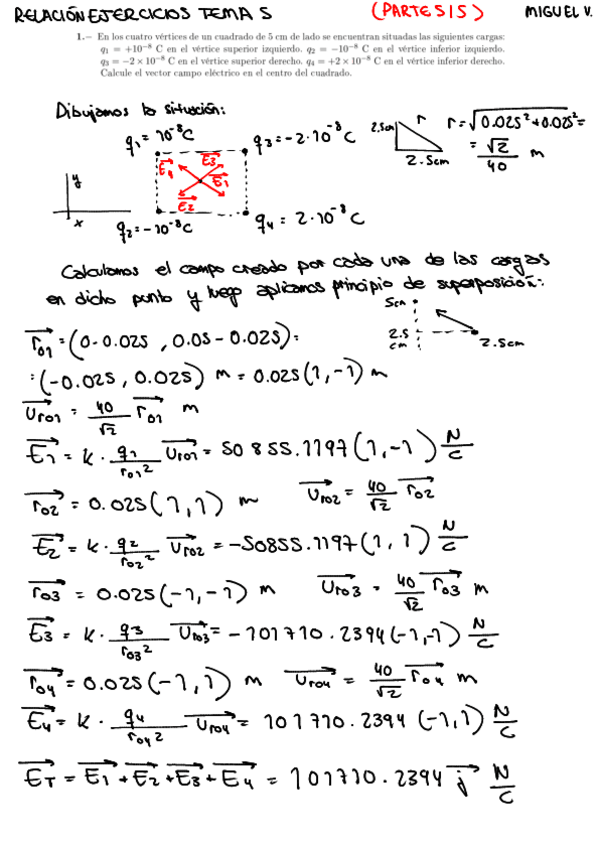 RELACIÓN EJERCICIOS TEMA 5 (PARTE 5|5) MIGUEL V.
1.– En los cuatro vértices de un cuadrado de 5 cm de lado se encuentran situadas las siguientes cargas:
q₁ = +10⁻⁸ C en el vértice superior izquierdo. q₂ = −10⁻⁸ C en el vértice inferior izquierdo.
q₃ = −2 × 10⁻⁸ C en el vértice superior derecho. q₄ = +2 × 10⁻⁸ C en el vértice inferior derecho.
Calcule el vector campo eléctrico en el centro del cuadrado.
Dibujamos la situación:
q₁ = 10⁻⁸C q₃ = -2·10⁻⁸ C 2.5cm r r = √0.025² + 0.025² =
2.5cm = √2/40 m
E₄ E₃
E₁
E₂
y
x
q₂ = -10⁻⁸C q₄ = 2·10⁻⁸ C
Calculamos el campo creado por cada una de las cargas
en dicho punto y luego aplicamos principio de superposición:
5cm
r₀₁ = (0 - 0.025 , 0.05 - 0.025) = 2.5 cm 2.5cm
= (-0.025, 0.025) m = 0.025(1,-1) m
Ur₀₁ = 40/√2 r₀₁ m
E₁ = K · q₁/r₀₁² Ur₀₁ = 50855.1197(1,-1) N/C
r₀₂ = 0.025(1,1) m Ur₀₂ = 40/√2 r₀₂
E₂ = K · q₂/r₀₂² Ur₀₂ = -50855.1197(1,1) N/C
r₀₃ = 0.025(-1,-1) m Ur₀₃ = 40/√2 r₀₃ m
E₃ = K · q₃/r₀₃² Ur₀₃ = -101710.2394(-1,-1) N/C
r₀₄ = 0.025(-1,1) m Ur₀₄ = 40/√2 r₀₄ m
E₄ = K · q₄/r₀₄² Ur₀₄ = 101710.2394 (-1,1) N/C
E_T = E₁ + E₂ + E₃ + E₄ = 101710.2394 j N/C